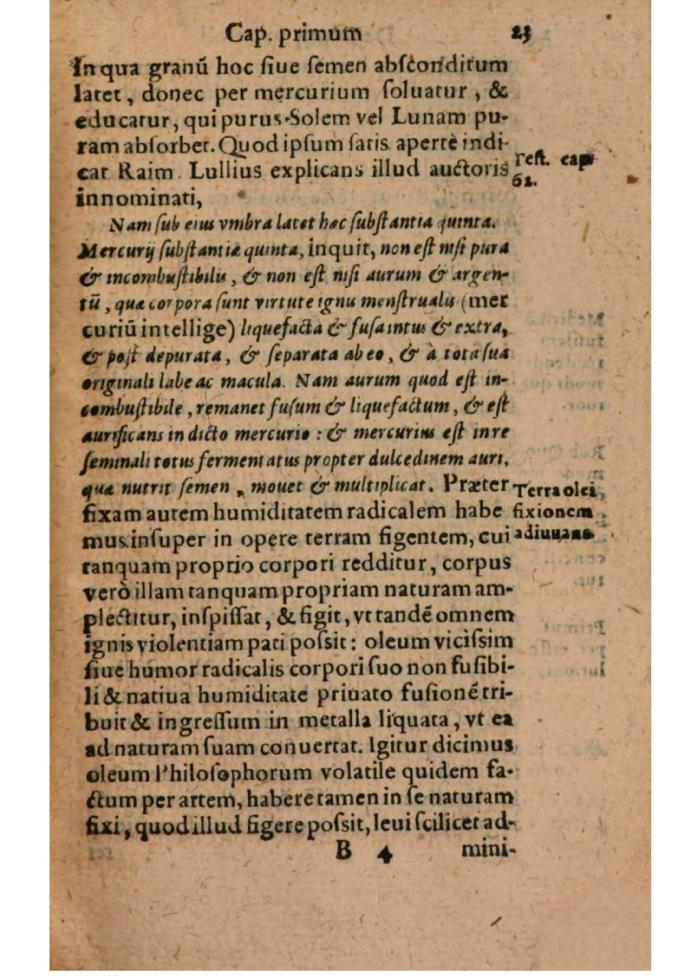 Cap. primum 23
In qua granū hoc ſiue ſemen abſconditum
latet, donec per mercurium ſoluatur, &
educatur, qui purus Solem vel Lunam pu-
ram abſorbet. Quod ipſum ſatis apertè indi-
cat Raim. Lullius explicans illud auctoris
teſt. cap.
62.
innominati,
Nam ſub eius vmbra latet hæc ſubſtantia quinta.
Mercurij ſubſtantia quinta, inquit, non eſt niſi pura
& incombuſtibilis, & non eſt niſi aurum & argen-
tū, quæ corpora ſunt virtute ignis menſtrualis (mer
curiū intellige) liquefacta & fuſa intus & extra,
& poſt depurata, & ſeparata ab eo, & à tota ſua
originali labe ac macula. Nam aurum quod eſt in-
combuſtibile, remanet fuſum & liquefactum, & eſt
aurificans in dicto mercurio: & mercurius eſt in re
ſeminali totus fermentatus propter dulcedinem auri,
quæ nutrit ſemen, mouet & multiplicat. Præter
Terra olei
fixam autem humiditatem radicalem habe
fixionem
mus inſuper in opere terram figentem, cui
adiuuans.
tanquam proprio corpori redditur, corpus
verò illam tanquam propriam naturam am-
plectitur, inſpiſſat, & figit, vt tandē omnem
ignis violentiam pati poſsit: oleum viciſsim
ſiue humor radicalis corpori ſuo non fuſibi-
li & natiua humiditate priuato fuſionē tri-
buit & ingreſſum in metalla liquata, vt ea
ad naturam ſuam conuertat. Igitur dicimus
oleum Philoſophorum volatile quidem fa-
ctum per artem, habere tamen in ſe naturam
fixi, quod illud figere poſsit, leui ſcilicet ad-
B 4 mini-